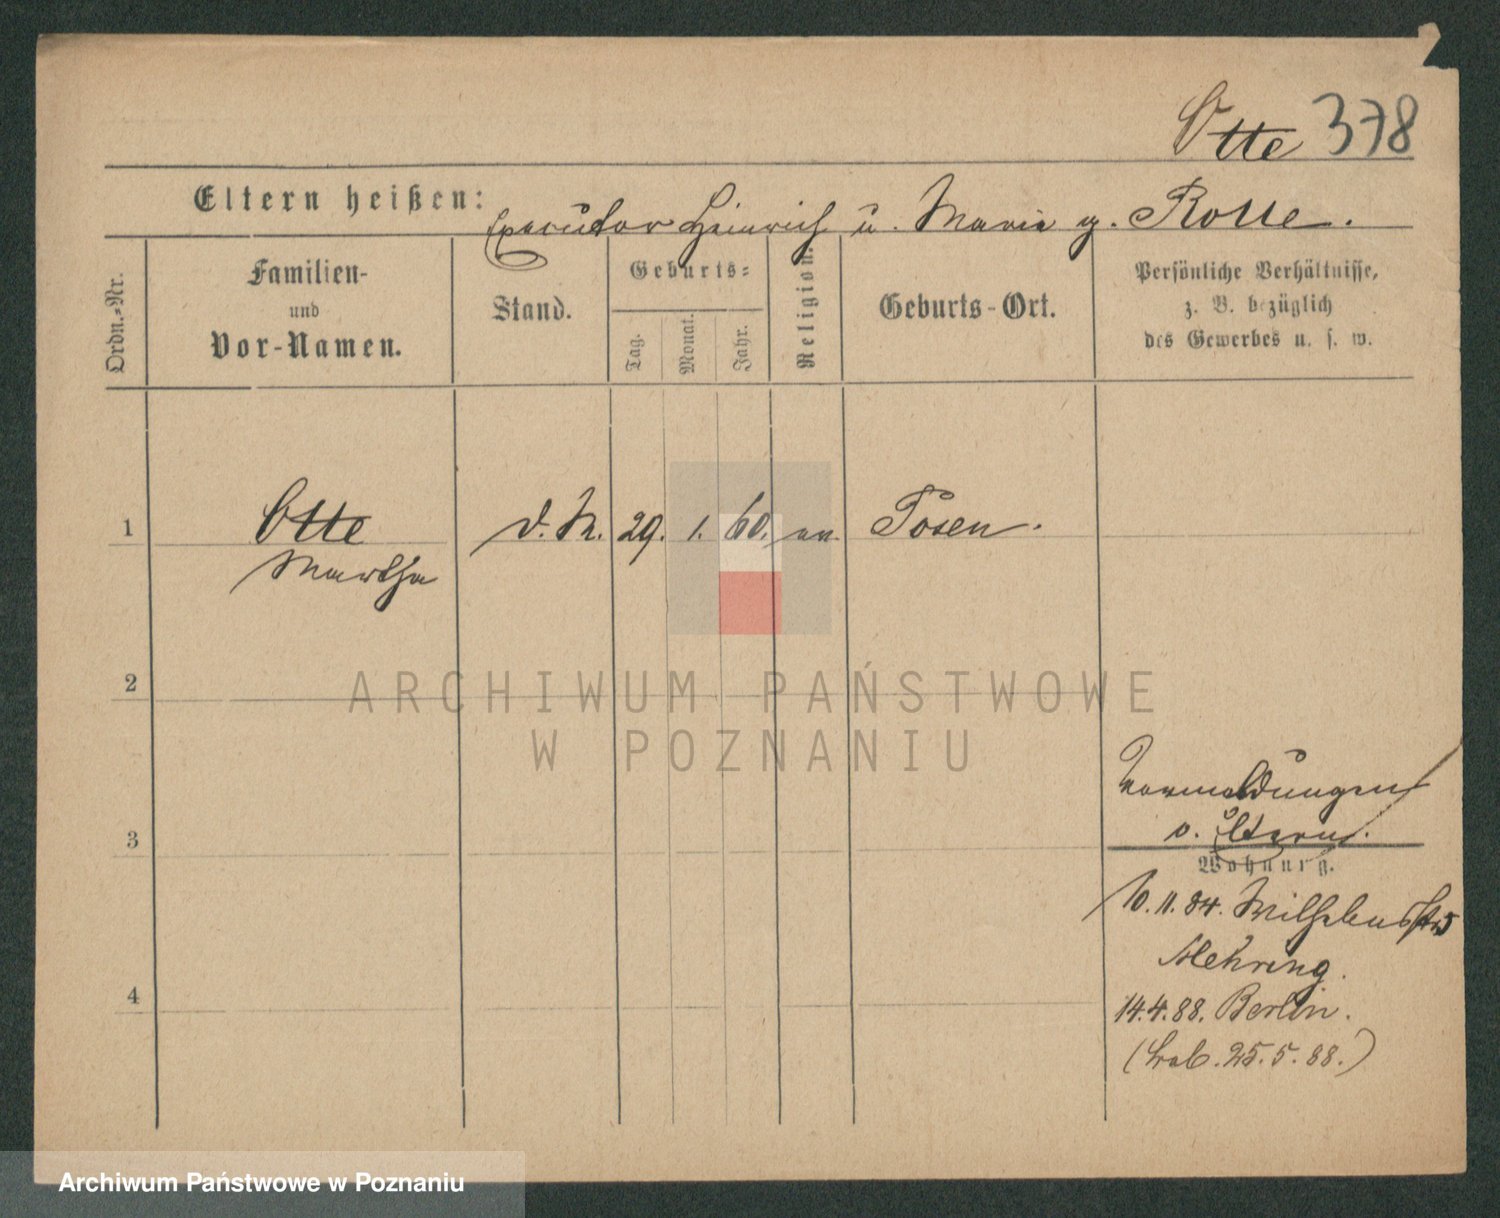 Otte 378
Eltern heißen: Executor Heinrich u. Marie g. Rolle.
Ordn.-Nr.
Familien-
und
Vor-Namen.
Stand.
Geburts-
Tag.
Monat.
Jahr.
Religion.
Geburts-Ort.
Persönliche Verhältnisse,
z. B. bezüglich
des Gewerbes u. s. w.
1 Otte d. M. 29. 1. 60. ev. Posen.
Martha
2
ARCHIWUM PAŃSTWOWE
W POZNANIU
3
4
Vormeldungen
v. Eltern.
Wohnung.
10.11.84. Wilhelmstr 5
Mehring.
14.4.88. Berlin.
25.5.88.)
Archiwum Państwowe w Poznaniu